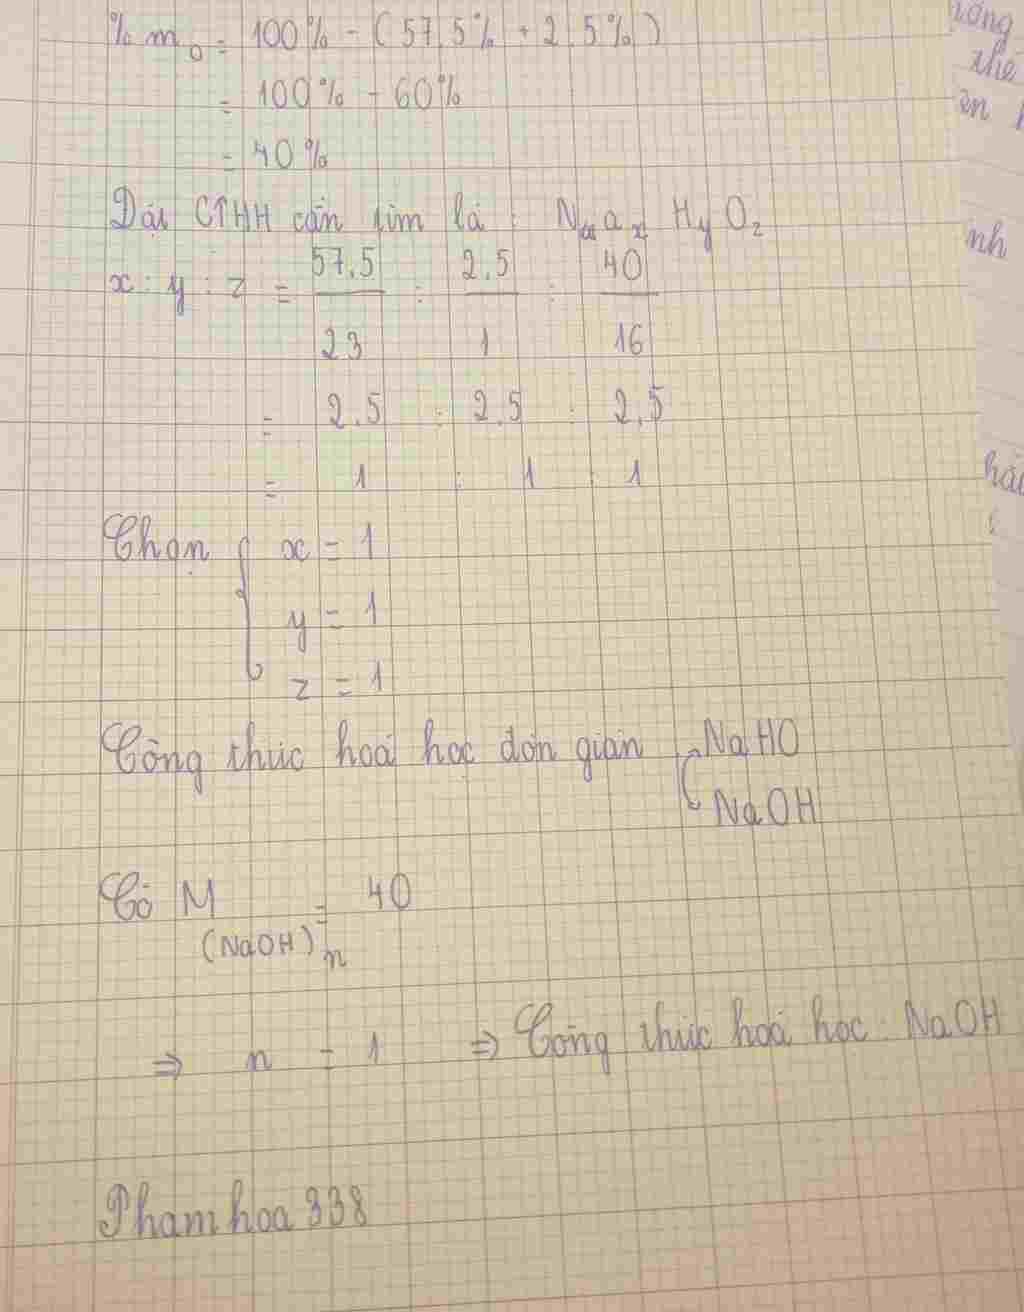 % m O = 100% - (57,5% + 2,5%)
= 100% - 60%
= 40%
Đặt CTHH cần tìm là : Naₓ H_y O_z
x : y : z = 57,5/23 : 2,5/1 : 40/16
= 2,5 : 2,5 : 2,5
= 1 : 1 : 1
Chọn { x = 1
y = 1
z = 1
Công thức hoá học đơn giản { NaHO
NaOH
Có M (NaOH)n = 40
⇒ n = 1 ⇒ Công thức hoá học : NaOH
Phamhoa 338
nh